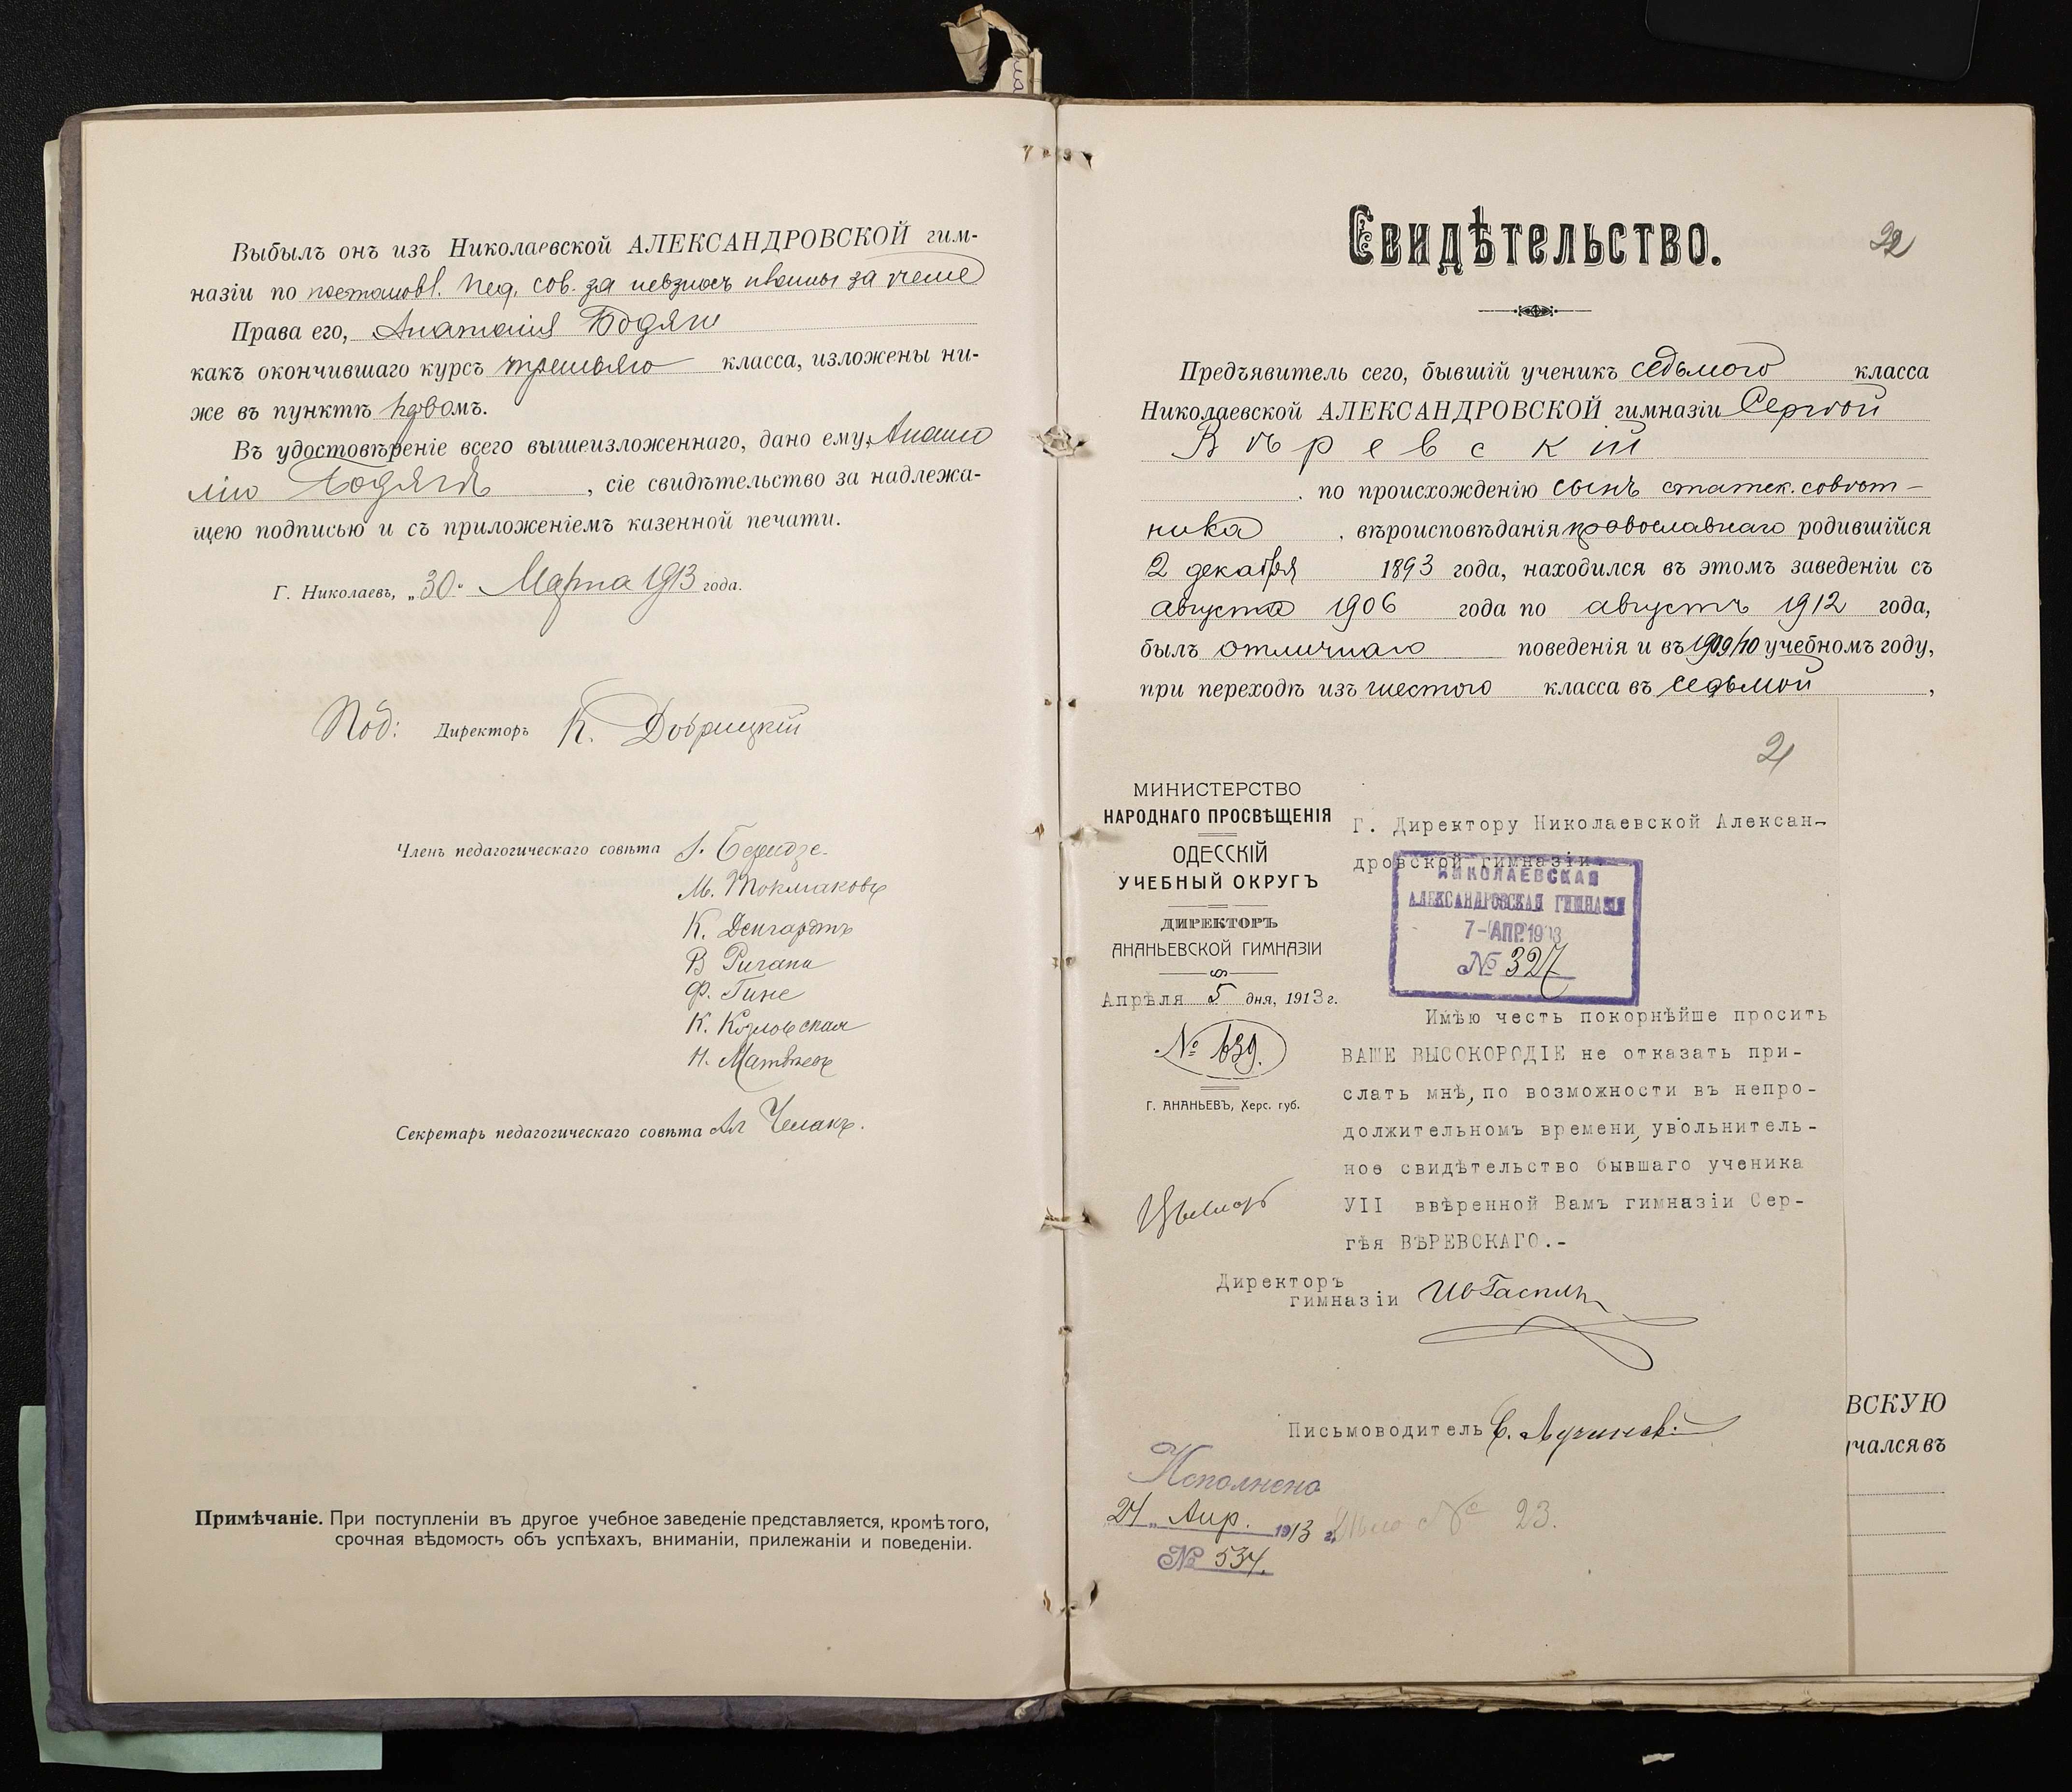 Выбылъ онъ изъ Николаевской АЛЕКСАНДРОВСКОЙ гим-
назіи по постановл. пед. сов. за невзносъ платы за ученіе
Права его, Анатолія Бодяги
какъ окончившаго курсъ третьяго класса, изложены ни-
же въ пунктѣ первомъ.
Въ удостовѣреніе всего вышеизложеннаго, дано ему, Анато
лію Бодягѣ, сіе свидѣтельство за надлежа-
щею подписью и съ приложеніемъ казенной печати.
Г. Николаевъ, „30" Марта 1913 года.
Под: Директоръ К. Добрицкій
Членъ педагогическаго совѣта
М. Токмаковъ
К. Денгардтъ
В
Ф. Гине
К. Козловская
Н. Матвѣевъ
Секретарь педагогическаго совѣта Ал Челакъ.
Примѣчаніе. При поступленіи въ другое учебное заведеніе представляется, кромѣ того,
срочная вѣдомость объ успѣхахъ, вниманіи, прилежаніи и поведеніи.
22
Свидѣтельство.
Предъявитель сего, бывшій ученикъ седьмого класса
Николаевской АЛЕКСАНДРОВСКОЙ гимназіи Сергѣй
Вѣревскій
по происхожденію сынъ статск. совѣт-
ника, вѣроисповѣданія православнаго родившійся
2 декабря 1893 года, находился въ этомъ заведеніи съ
августа 1906 года по августъ 1912 года,
былъ отличнаго поведенія и въ 1909/10 учебномъ году,
при переходѣ изъ шестого класса въ седьмой,
21
МИНИСТЕРСТВО
НАРОДНАГО ПРОСВѢЩЕНІЯ
ОДЕССКІЙ
УЧЕБНЫЙ ОКРУГЪ
ДИРЕКТОРЪ
АНАНЬЕВСКОЙ ГИМНАЗІИ
Апрѣля 5 дня, 1913 г.
№ 639.
Г. АНАНЬЕВЪ, Херс. губ.
Г. Директору Николаевской Алексан-
дровской гимназіи.
НИКОЛАЕВСКАЯ
АЛЕКСАНДРОВСКАЯ ГИМНАЗІЯ
7-АПР.1913
№ 327
Имѣю честь покорнѣйше просить
ВАШЕ ВЫСОКОРОДІЕ не отказать при-
слать мнѣ, по возможности въ непро-
должительномъ времени, увольнитель-
ное свидѣтельство бывшаго ученика
УІІ ввѣренной Вамъ гимназіи Сер-
гѣя ВѢРЕВСКАГО.-
Директоръ
гимназіи
Письмоводитель
Исполнено
24 Апр. 1913 г.
№ 534.
№ 23.
ВСКУЮ
чался въ